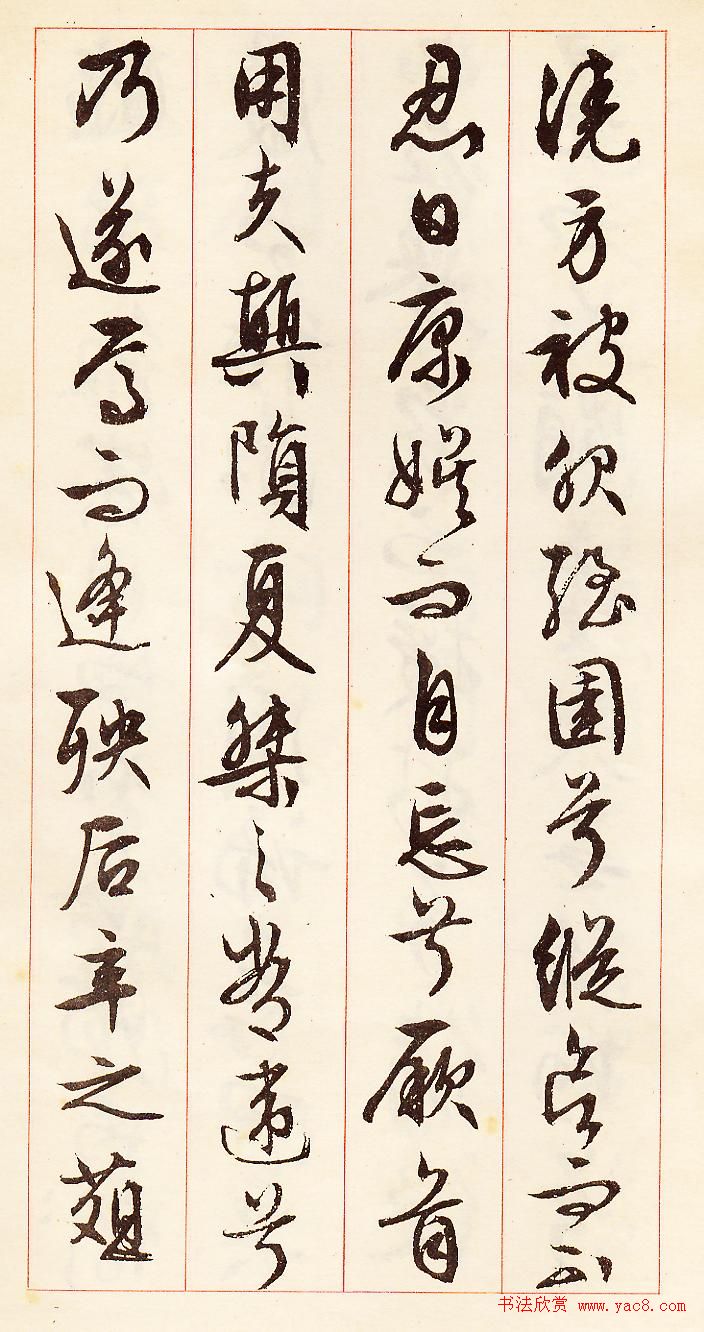 澆身被服強圉兮縱欲而不
忍日康娛而自忘兮厥首
用夫顛隕夏桀之常違兮
乃遂焉而逢殃后辛之菹
书法欣赏 www.yac8.com